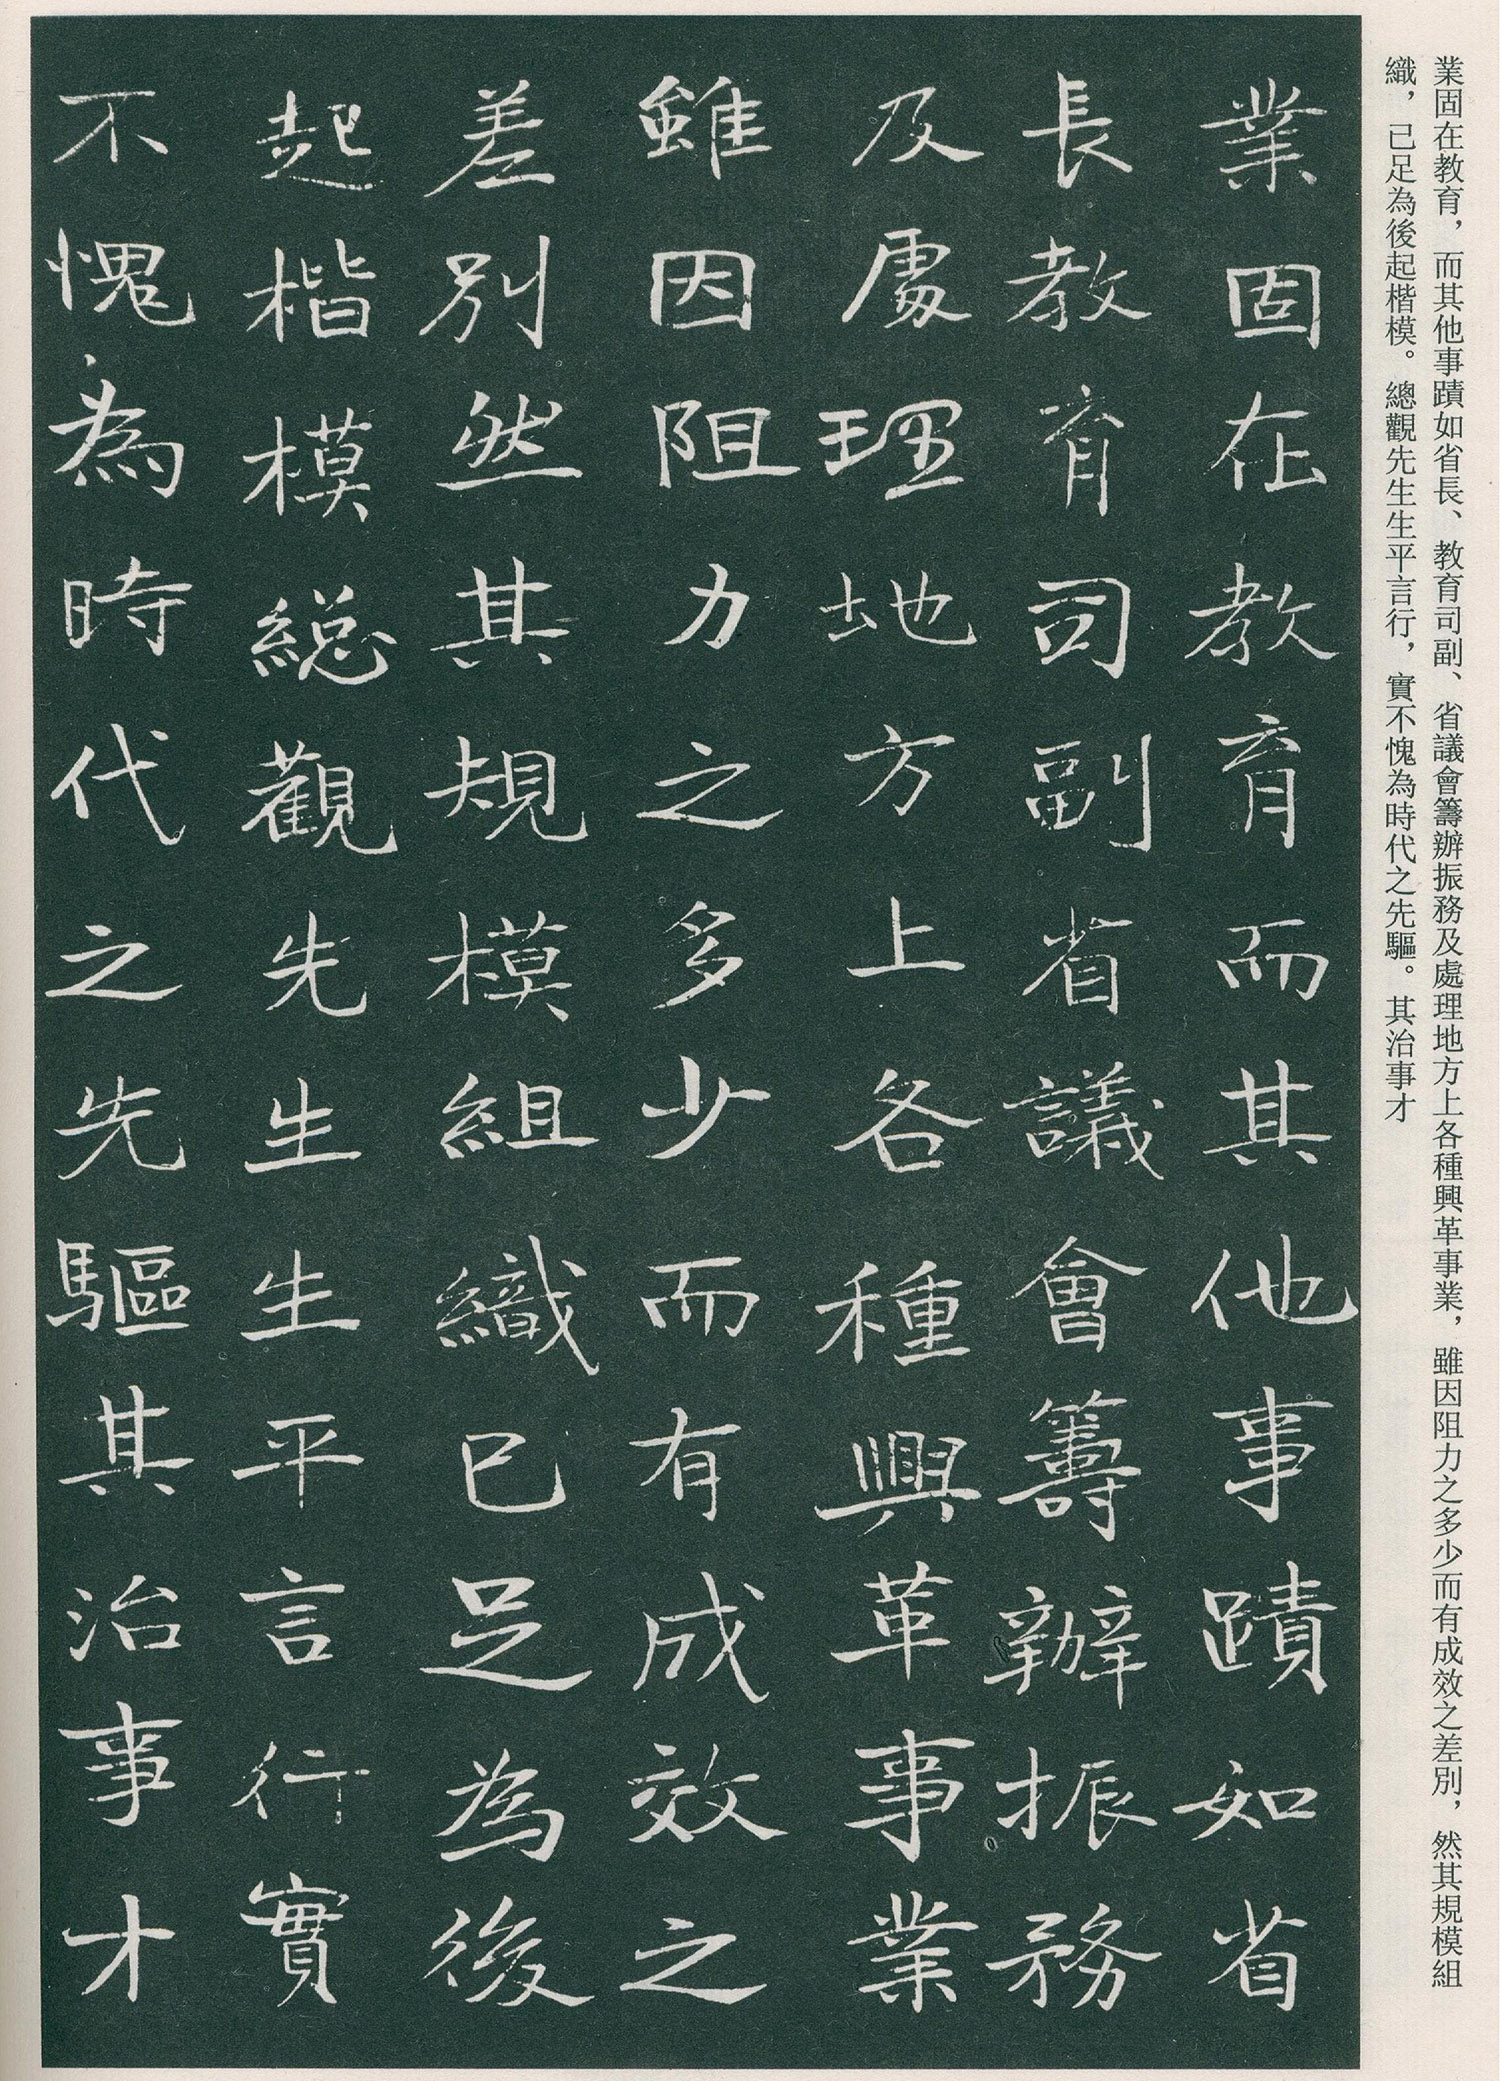 業固在教育，而其他事蹟如省長、教育司副、省議會籌辦振務及處理地方上各種興革事業，雖因阻力之多少而有成效之差別，然其規模組
織，已足為後起楷模。總觀先生生平言行，實不愧為時代之先驅。其治事才
業固在教育而其他事蹟如省
長教育司副省議會籌辦振務
及處理地方上各種興革事業
雖因阻力之多少而有成效之
差別然其規模組織已足為後
起楷模総觀先生生平言行實
不愧為時代之先驅其治事才